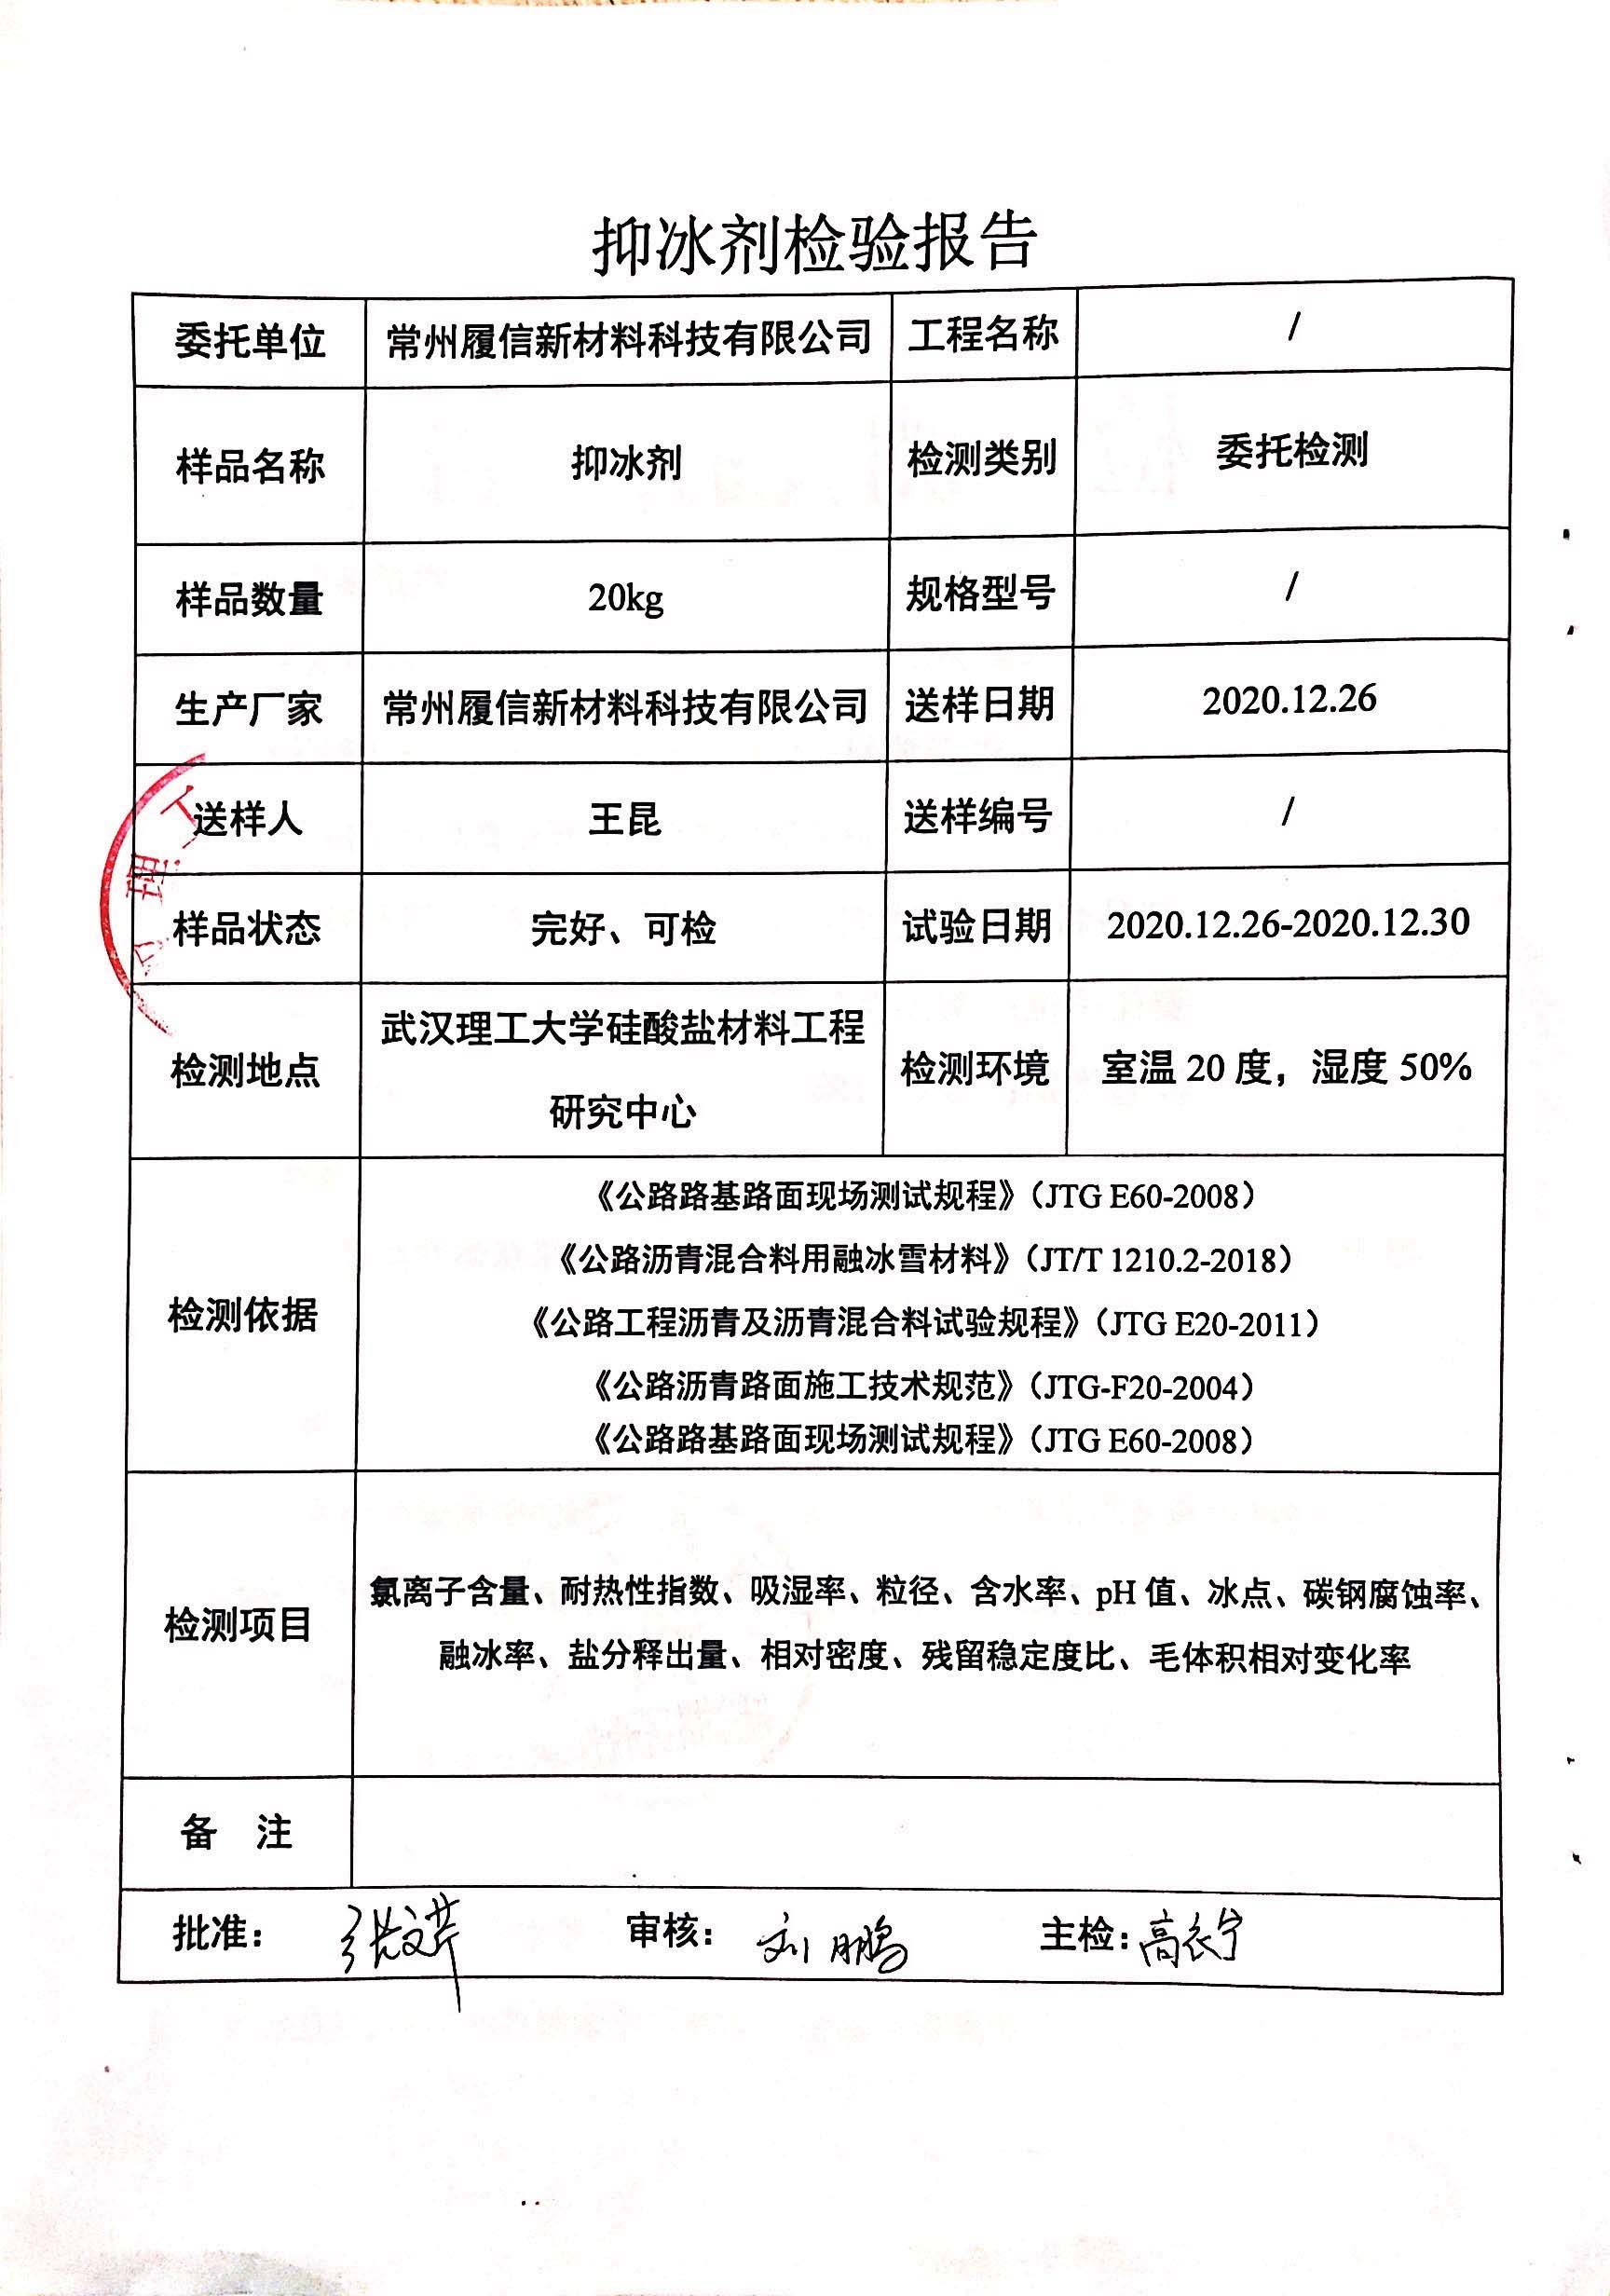 抑冰剂检验报告
委托单位 常州履信新材料科技有限公司 工程名称 /
样品名称 抑冰剂 检测类别 委托检测
样品数量 20kg 规格型号 /
生产厂家 常州履信新材料科技有限公司 送样日期 2020.12.26
送样人 王昆 送样编号 /
样品状态 完好、可检 试验日期 2020.12.26-2020.12.30
检测地点 武汉理工大学硅酸盐材料工程
研究中心 检测环境 室温 20 度，湿度 50%
检测依据
《公路路基路面现场测试规程》（JTG E60-2008）
《公路沥青混合料用融冰雪材料》（JT/T 1210.2-2018）
《公路工程沥青及沥青混合料试验规程》（JTG E20-2011）
《公路沥青路面施工技术规范》（JTG-F20-2004）
《公路路基路面现场测试规程》（JTG E60-2008）
检测项目
氯离子含量、耐热性指数、吸湿率、粒径、含水率、pH 值、冰点、碳钢腐蚀率、
融冰率、盐分释出量、相对密度、残留稳定度比、毛体积相对变化率
备 注
批准： 审核：刘鹏 主检：高
理工